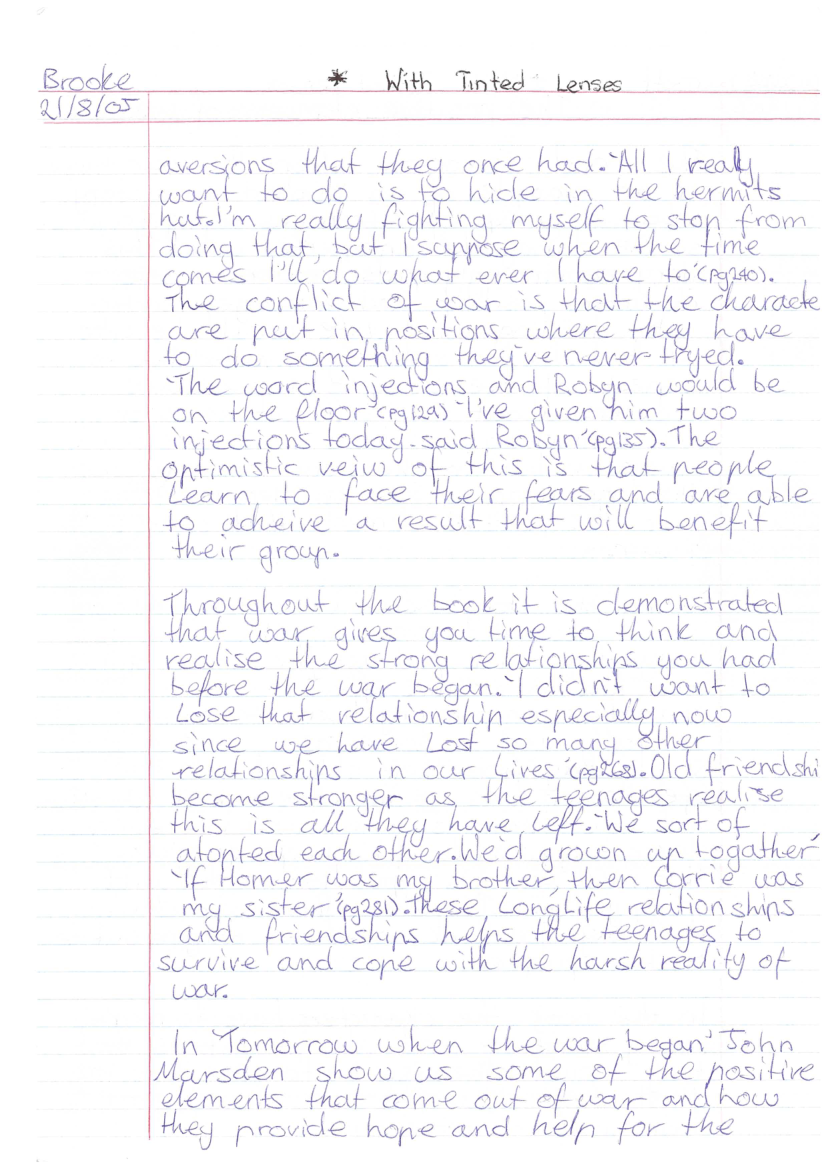 Brooke
* With Tinted Lenses
21/8/05
aversions that they once had. 'All I really
want to do is to hide in the hermits
hut. I'm really fighting myself to stop from
doing that, but I suppose when the time
comes I'll do what ever I have to' (pg240).
The conflict of war is that the characte
are put in positions where they have
to do something they've never tryed.
'The word injections and Robyn would be
on the floor' (pg129) 'I've given him two
injections today. said Robyn' (pg135). The
optimistic veiw of this is that people
Learn to face their fears and are able
to acheive a result that will benefit
their group.
Throughout the book it is demonstrated
that war gives you time to think and
realise the strong relationships you had
before the war began. 'I didn't want to
Lose that relationship especially now
since we have Lost so many other
relationships in our Lives' (pg268). Old friendshi
become stronger as the teenages realise
this is all they have left. 'We sort of
atopted each other. We'd grown up togather'
'If Homer was my brother, then Corrie was
my sister' (pg281). These Longlife relationships
and friendships helps the teenages to
survive and cope with the harsh reality of
war.
In 'Tomorrow when the war began' John
Marsden show us some of the positive
elements that come out of war and how
they provide hope and help for the